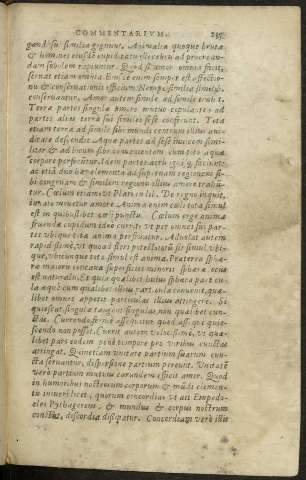 COMMENTARIVM. 235
gandi sui similia gignunt. Animalia quoque bruta,
& homines eiusdē cupiditatis illecebris ad procrean-
dam sobolem rapiuntur. Quòd si amor omnia facit,
seruat etiam omnia. Eiusdē enim semper est affectio-
nis & conseruationis officium. Nempe similia similib.
conseruantur. Amor autem simile ad simile trahit.
Terræ partes singulæ amore mutuo copulatæ ad
partes alias terræ sui similes sese conferunt. Tota
etiam terra ad simile sibi mundi centrum illius aui-
ditate descendit. Aquæ partes ad sese inuicem simi-
liter & ad locum sibi conuenientem cum toto aquæ
corpore proficiscuntur. Idem partes aëris ignisq; faciunt,
ac etiā duo hæc elementa ad supernam regionem si-
bi congruam & similem regionis illius amore trahū-
tur. Cœlum etiam, vt Plato in lib. De regno inquit,
innato mouetur amore. Anima enim cœli tota simul
est in quibuslibet cœli punctis. Cœlum ergo animæ
fruendæ cupidum ideo currit, vt per omnes sui par-
tes vbique tota anima perfruatur. Aduolat autem
rapidissimè, vt quoad fieri potest totum sit simul vbi-
que, vbicunque tota simul est anima. Præterea sphæ-
ræ maioris concaua superficies minoris sphæræ ocus
est naturalis. Et quia quælibet huius sphæræ particu-
la æquè cum qualibet illius particula conuenit, quæ-
libet omnes appetit particulas illius attingere. Si
quiescat, singulæ tangent singulas, non quælibet cun-
ctas. Currendo fermè assequitur quod assequi quie-
scendo non posset. Currit autem velocissimè, vt quæ-
libet pars eodem penè tempore pro viribus cunctas
attingat. Quinetiam vnitate partium suarum cun-
cta seruantur, dispersione partium pereunt. Vnitatē
verò partium mutuus earundem efficit amor. Quod
in humoribus nostrorum corporum & mūdi elemen-
tis intueri licet, quorum concordia, vt ait Empedo-
cles Pythagoreus, & mundus & corpus nostrum
constat, discordia dissipatur. Concordiam verò illis